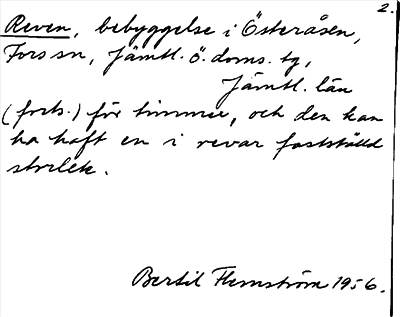 2.
Reven, bebyggelse i Österåsen,
Fors sn, Jämtl. ö. doms. tg,
Jämtl. län
(forts.) för timmer, och den kan
ha haft en i revar fastställd
storlek.
Bertil Flemström 1956.